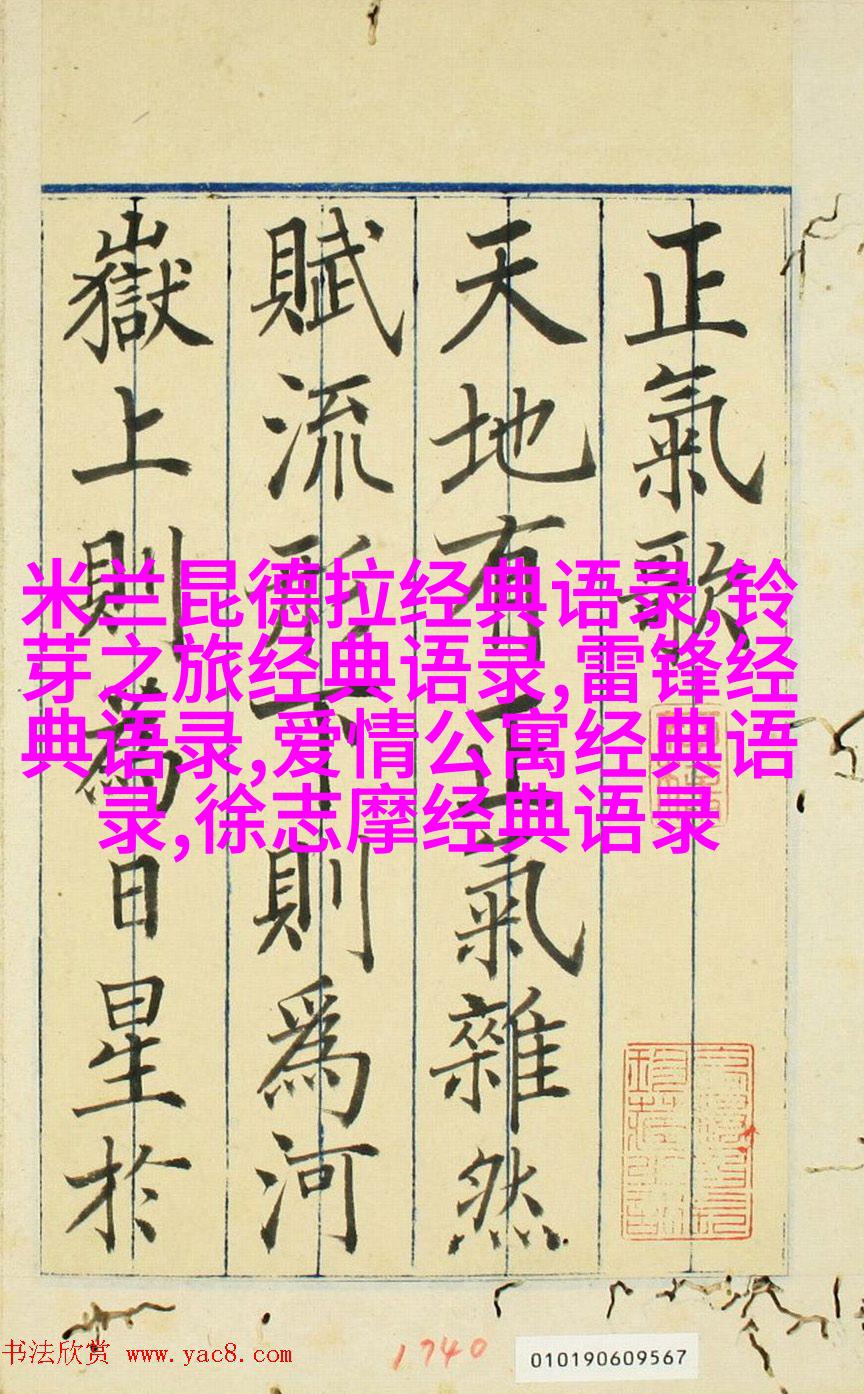 正氣歌
天地有正氣雜然
賦流形下則爲河
嶽上則為日星於
米兰昆德拉经典语录,铃
芽之旅经典语录,雷锋经
典语录,爱情公寓经典语
录,徐志摩经典语录
书法欣赏 www.yac8.com
1740
010190609567